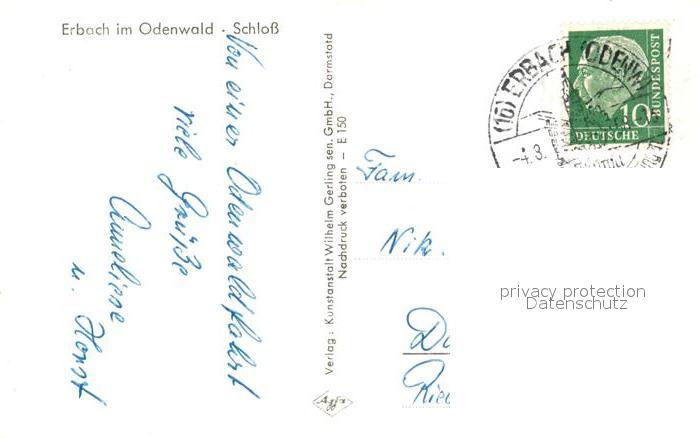 Erbach im Odenwald · Schloß
Von einer Odenwaldfahrt
viele Grüße
Anneliese
u. Horst
Verlag: Kunstanstalt Wilhelm Gerling sen. GmbH., Darmstadt
Nachdruck verboten – E 150
Agfa
Fam.
Nik.
Da
Ried
(16) ERBACH (ODENW
-4.3.
10
DEUTSCHE
BUNDESPOST
privacy protection
Datenschutz